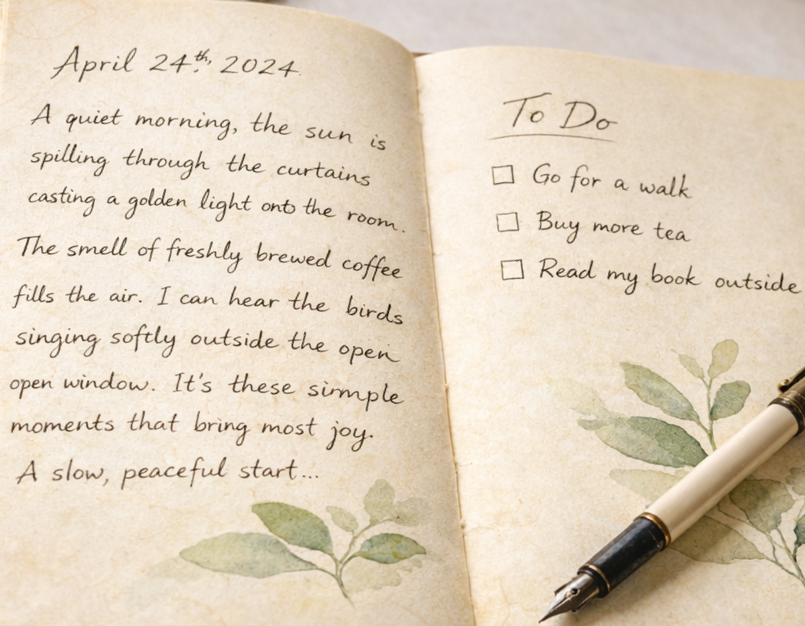 April 24th, 2024
A quiet morning, the sun is
spilling through the curtains
casting a golden light onto the room.
The smell of freshly brewed coffee
fills the air. I can hear the birds
singing softly outside the open
open window. It's these simmple
moments that bring most joy.
A slow, peaceful start...
To Do
☐ Go for a walk
☐ Buy more tea
☐ Read my book outside